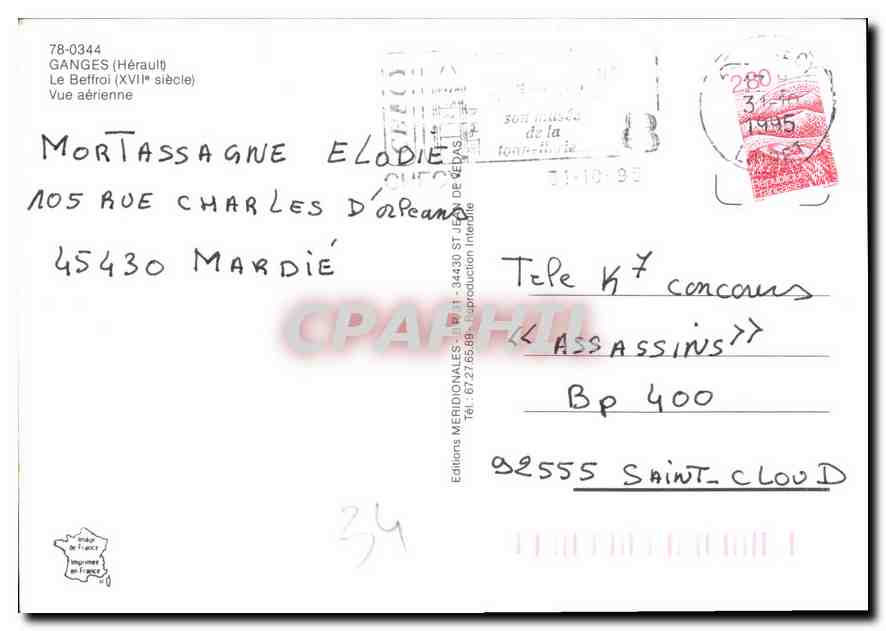 78-0344
GANGES (Hérault)
Le Beffroi (XVIIe siècle)
Vue aérienne
MORTASSAGNE ELODIE
105 RUE CHARLES D'ORLéans
45430 MARDIÉ
son musée
de la
31-10-95
2,80
31-10
1995
Editions MERIDIONALES - B.P. 31 - 34430 ST JEAN DE VEDAS
Tél.: 67.27.65.89 - Reproduction Interdite
Tele K7 concours
« ASSASSINS »
Bp 400
92555 SAINT-CLOUD
CPAPHIL
34
Image
de France
Imprimée
en France